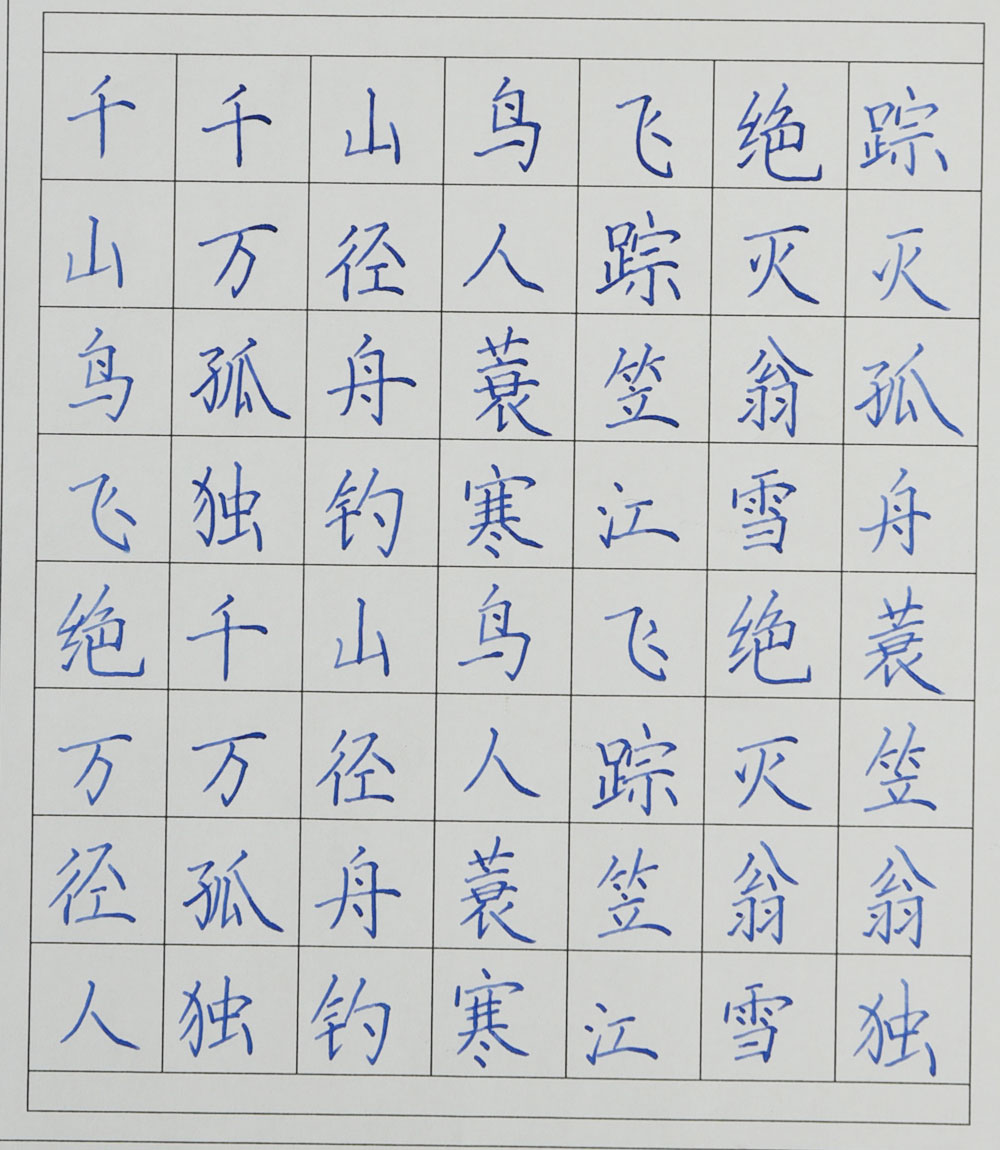 千千山鸟飞绝踪
山万径人踪灭灭
鸟孤舟蓑笠翁孤
飞独钓寒江雪舟
绝千山鸟飞绝蓑
万万径人踪灭笠
径孤舟蓑笠翁翁
人独钓寒江雪独